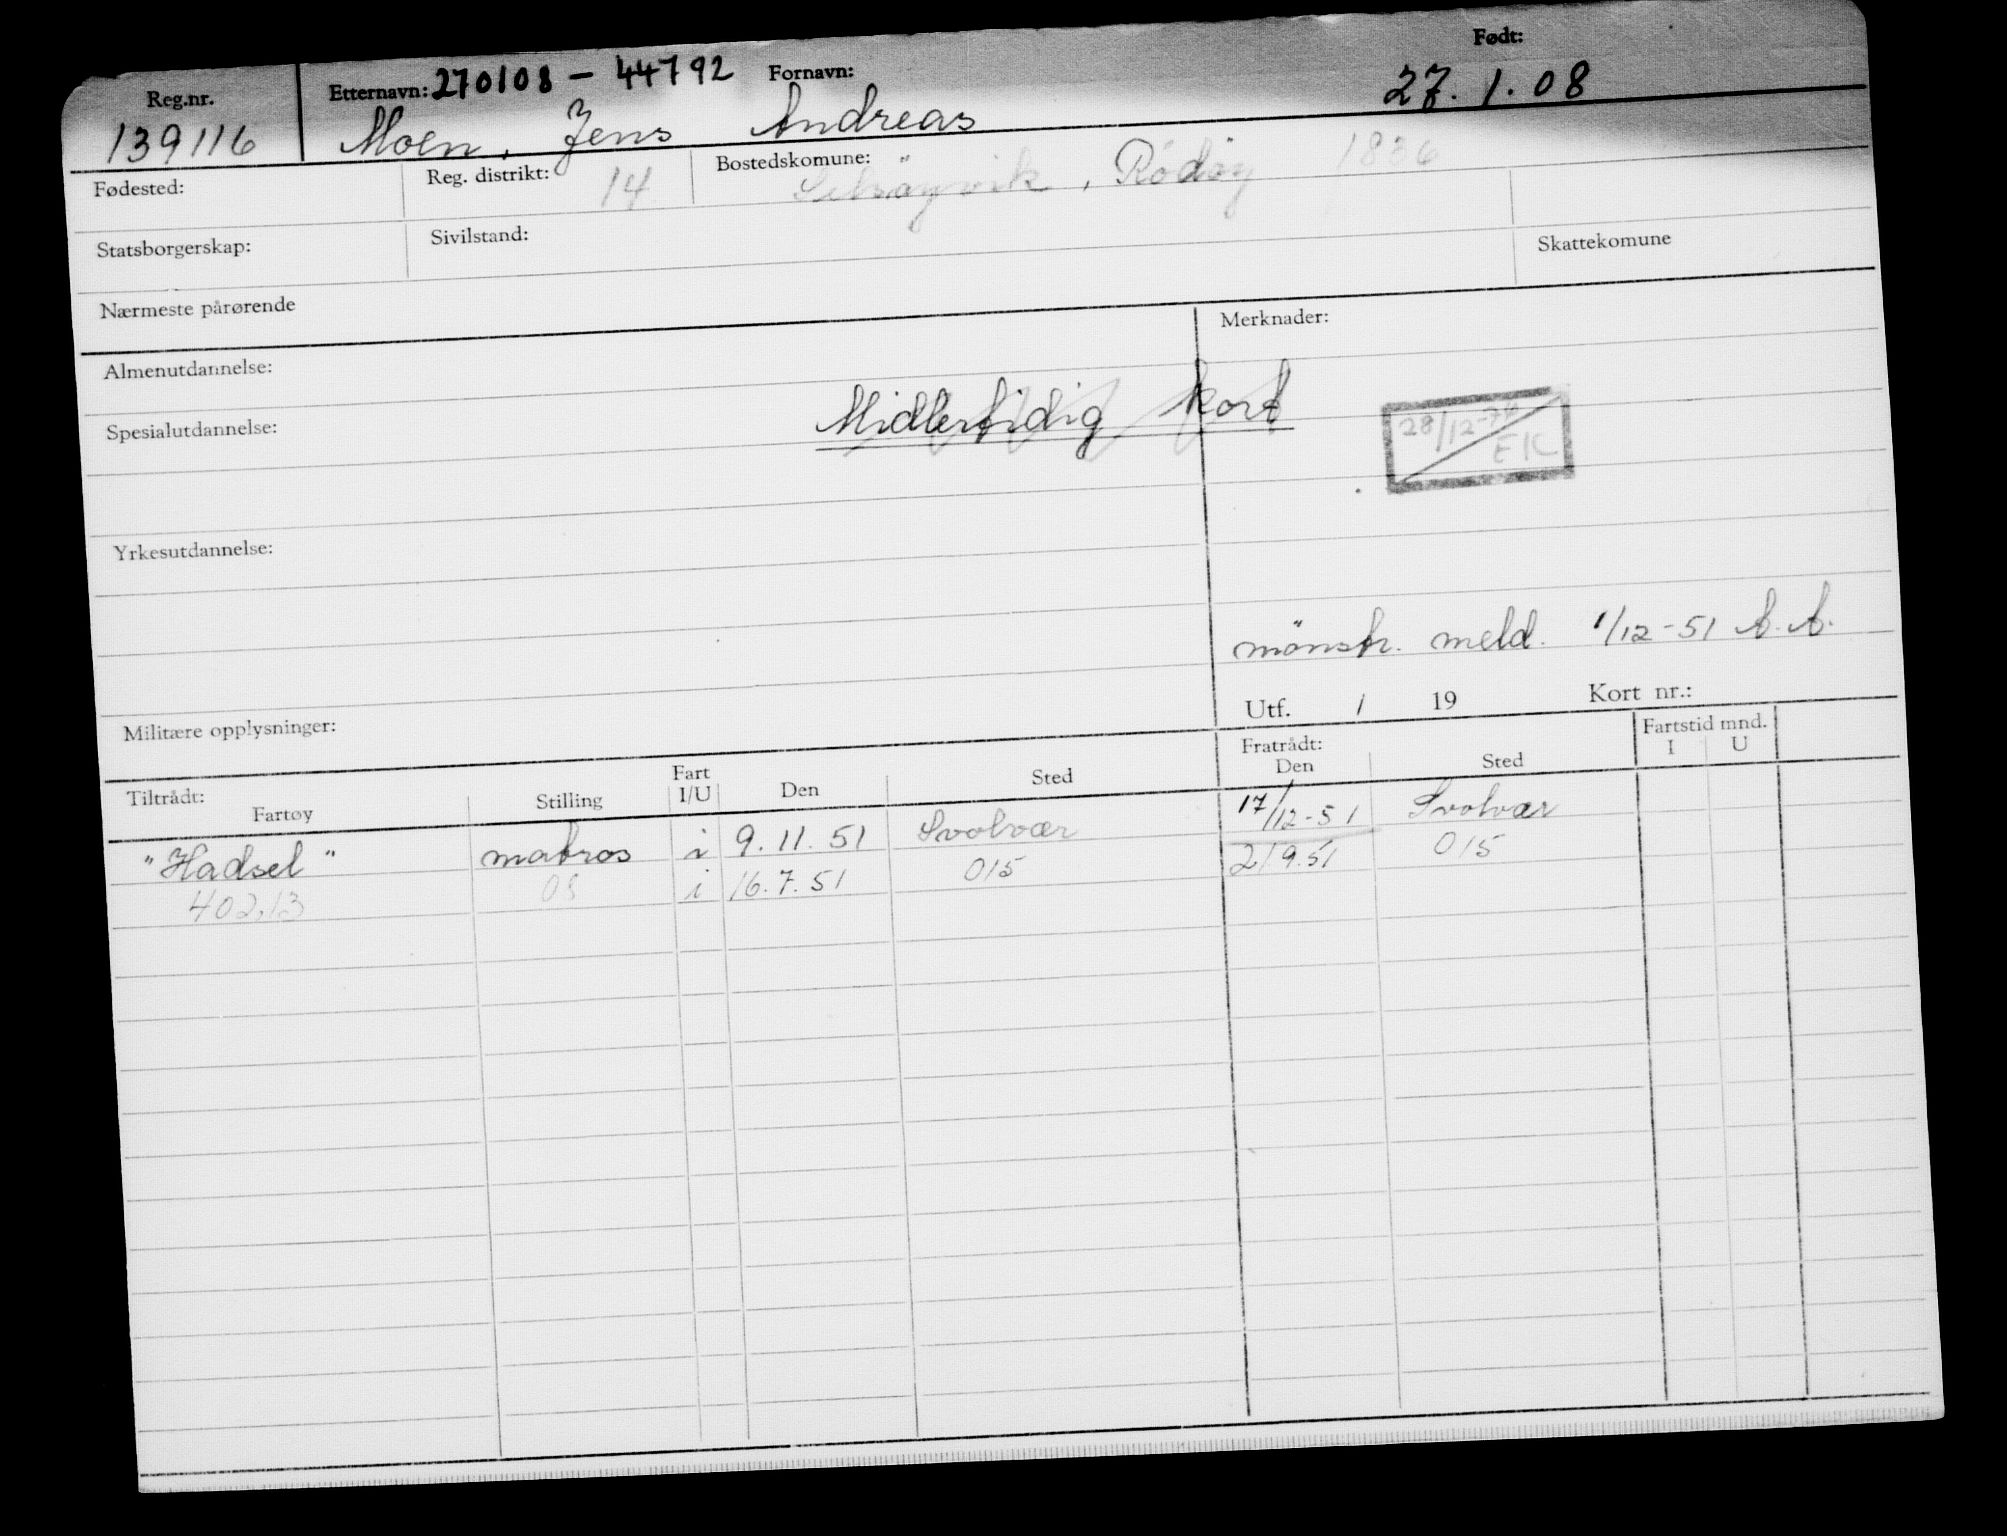 Reg.nr. Etternavn: 270108 - 44792 Fornavn: Født:
139116 Moen, Jens Andreas 27.1.08
Fødested: Reg. distrikt: 14 Bostedskomune: Selsöyvik, Rödöy 1836
Statsborgerskap: Sivilstand: Skattekomune
Nærmeste pårørende
Almenutdannelse: Merknader:
Spesialutdannelse: Midlertidig kort 28/12-76 EK
Yrkesutdannelse:
mönstr. meld. 1/12-51 A.A.
Militære opplysninger: Utf. / 19 Kort nr.:
Tiltrådt: Fratrådt: Fartstid mnd.
Fartøy Stilling Fart I/U Den Sted Den Sted I U
"Hadsel" matros i 9.11.51 Svolvær 17/12-51 Svolvær
402,13 08 i 16.7.51 015 2/9.51 015